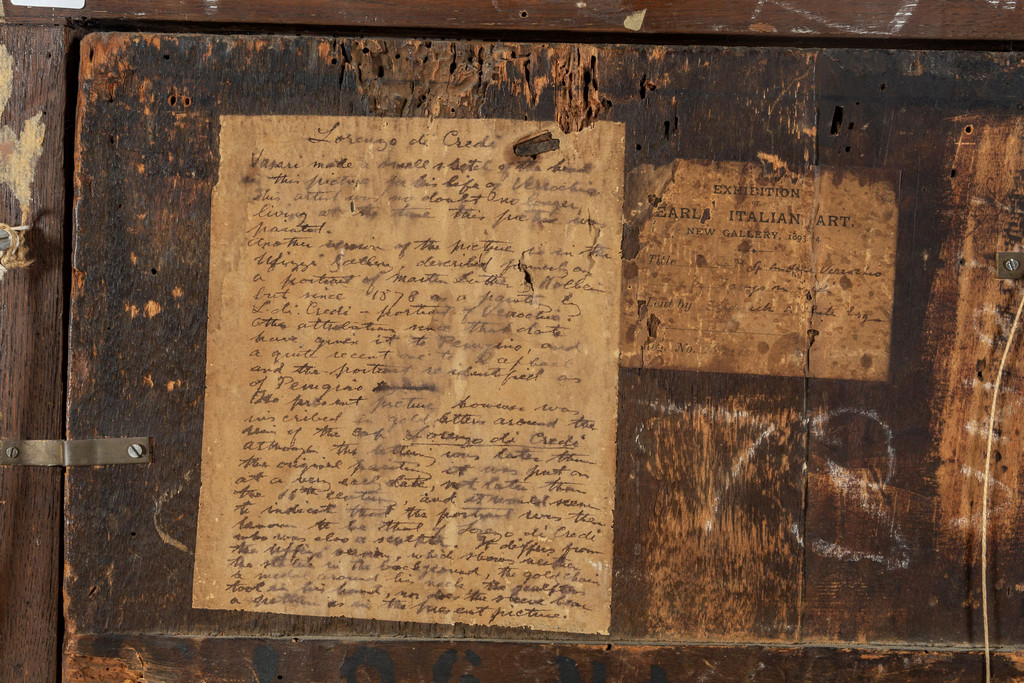 Lorenzo di Credi
Vasari made a small sketch of the head
in this picture for his life of Verocchio.
This artist was no doubt no longer
living at the time this picture was
painted.
Another version of the picture is in the
Uffizi Gallery, described formerly as
a portrait of Martin Luther by Holbein
but since 1878 as a painting by
L. di Credi - portrait of Verocchio.
Other attributions since that date
have given it to Perugino, and
a quite recent one to Raphael
and the portrait re-identified as
of Perugino
The present picture, however was
inscribed in gold letters around the
of the cap Lorenzo di Credi
although the lettering was later than
the original painting, it was put on
at a very early date, not later than
the 16th century, and it would seem
to indicate that the portrait was then
known to be that of Lorenzo di Credi
who was also a sculptor. It differs from
the Uffizi version, which shows neither
the statue in the background, the gold chain
& medal around his neck, the sculptor's
tool in his hand, nor does the
a as in the present picture.
EXHIBITION
EARLY ITALIAN ART.
NEW GALLERY, 1893-4
Title of Andrea Verrocchio
by
Lent by Esq
No.